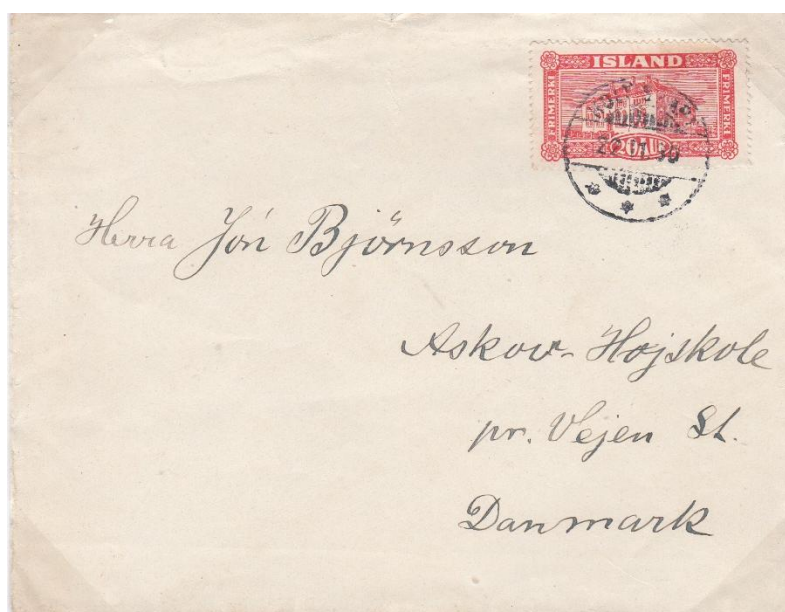 ISLAND
FRIMERKI
FRIMERKI
20 AUR
Herra Jón Björnsson
Askov-Højskole
pr. Vejen St.
Danmark